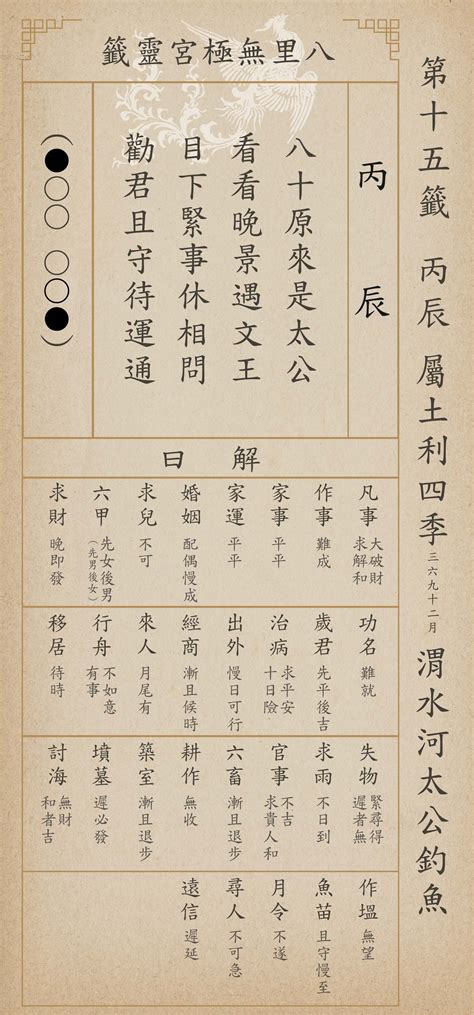 第十五籤 丙辰 屬土利四季 三六九十二月 渭水河太公釣魚
八里無極宮靈籤
丙辰
八十原來是太公
看看晚景遇文王
目下緊事休相問
勸君且守待運通
(●○○ ○○●)
解曰
凡事 大破財 求解和
作事 難成
家事 平平
家運 平平
婚姻 配偶慢成
求兒 不可
六甲 先女後男 (先男後女)
求財 晚即發
功名 難就
歲君 先平後吉
治病 求平安 十日險
出外 慢日可行
經商 漸且候時
來人 月尾有
行舟 不如意 有事
移居 待時
失物 緊尋得 遲者無
求雨 不日到
官事 不吉 求貴人和
六畜 漸且退步
耕作 無收
築室 漸且退步
墳墓 遲必發
討海 無財 和者吉
作塭 無望
魚苗 且守慢至
月令 不遂
尋人 不可急
遠信 遲延